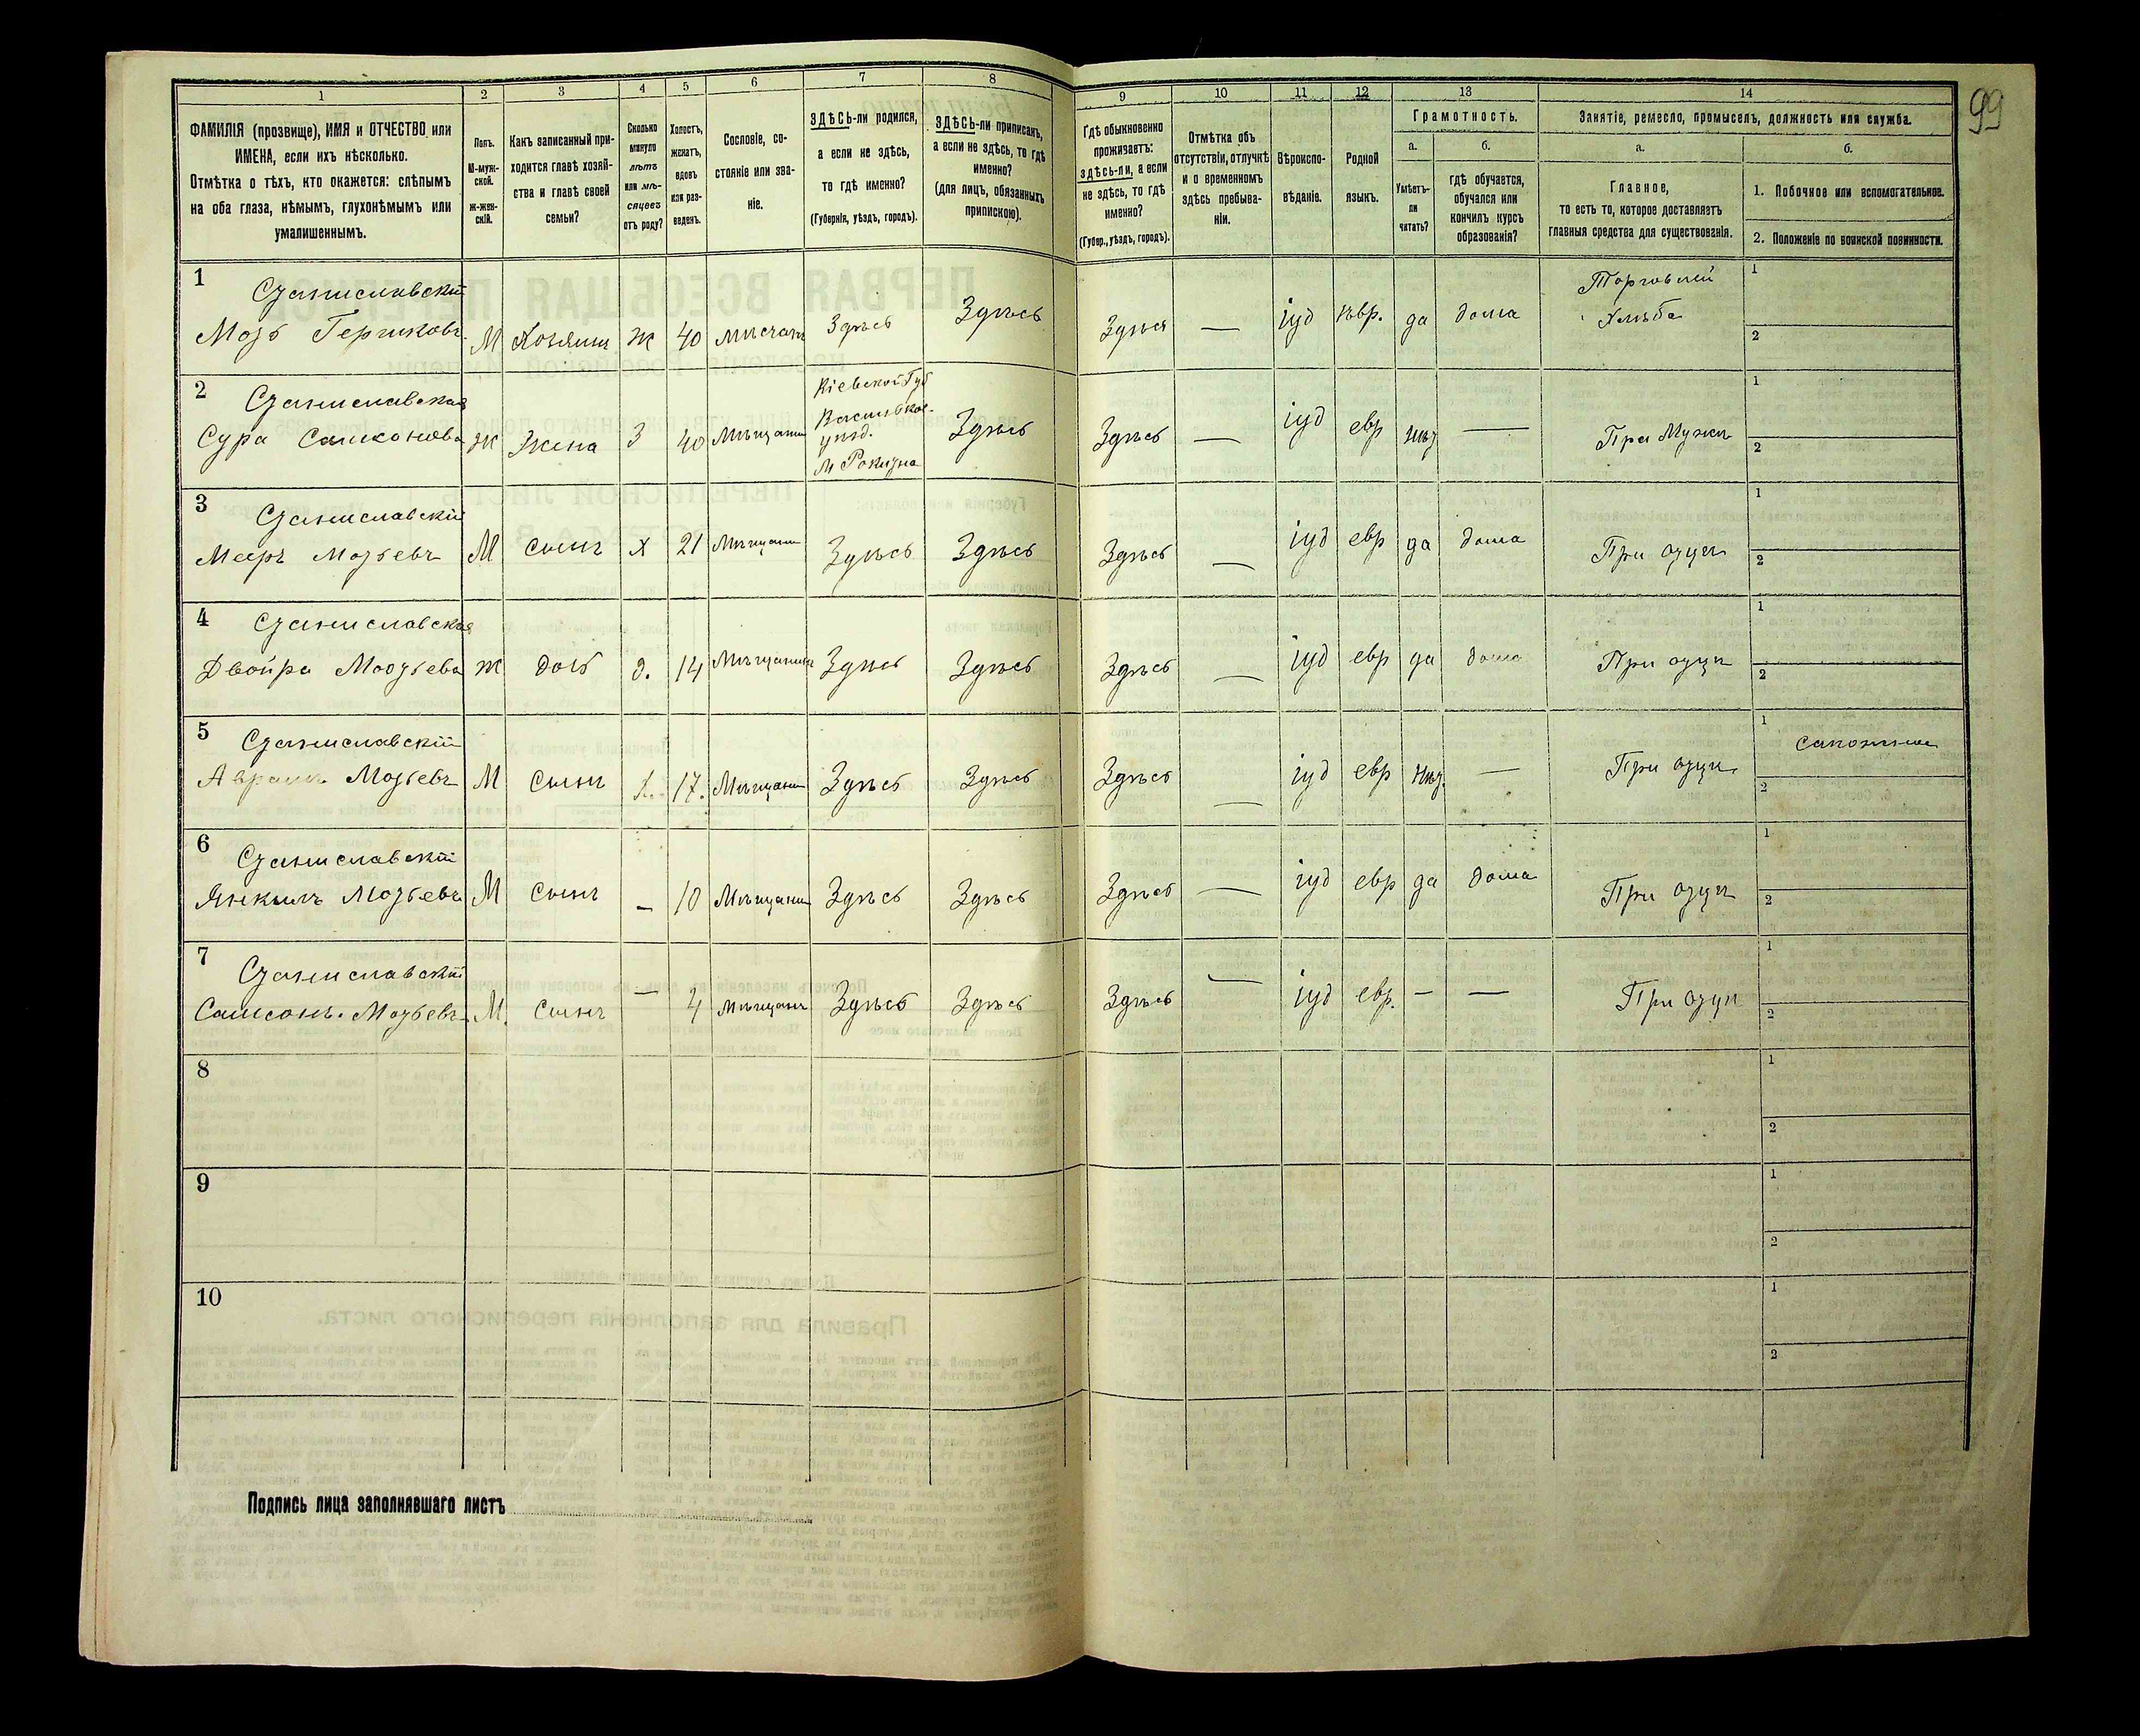 99
1 2 3 4 5 6 7 8 9 10 11 12 13 14
ФАМИЛІЯ (прозвище), ИМЯ и ОТЧЕСТВО или
ИМЕНА, если ихъ нѣсколько.
Отмѣтка о тѣхъ, кто окажется: слѣпымъ
на оба глаза, нѣмымъ, глухонѣмымъ или
умалишеннымъ.
Полъ.
М-муж-
ской.
ж-жен-
скій.
Какъ записанный при-
ходится главѣ хозяй-
ства и главѣ своей
семьи?
Сколько
минуло
лѣтъ
или мѣ-
сяцевъ
отъ роду?
Холостъ,
женатъ,
вдовъ
или раз-
веденъ.
Сословіе, со-
стояніе или зва-
ніе.
ЗДѢСЬ-ли родился,
а если не здѣсь,
то гдѣ именно?
(Губернія, уѣздъ, городъ).
ЗДѢСЬ-ли приписанъ,
а если не здѣсь, то гдѣ
именно?
(для лицъ, обязанныхъ
припискою).
Гдѣ обыкновенно
проживаетъ:
здѣсь-ли, а если
не здѣсь, то гдѣ
именно?
(Губер., уѣздъ, городъ).
Отмѣтка объ
отсутствіи, отлучкѣ
и о временномъ
здѣсь пребыва-
ніи.
Вѣроиспо-
вѣданіе.
Родной
языкъ.
Грамотность.
а.
Умѣетъ-
ли
читать?
б.
гдѣ обучается,
обучался или
кончилъ курсъ
образованія?
Занятіе, ремесло, промыселъ, должность или служба.
а.
Главное,
то есть то, которое доставляетъ
главныя средства для существованія.
б.
1. Побочное или вспомогательное.
2. Положеніе по воинской повинности.
1 Станиславскій
Мозь Гершковъ М Хозяинъ Ж 40 Здѣсь Здѣсь — іуд да дома
Торговлей
Хлѣба
1
2
2 Станиславская
Сура Ж Жена З 40 Мѣщани
Кіевской Губ
уѣзд.
Здѣсь Здѣсь — іуд евр — При Мужѣ
1
2
3 Станиславскій
Мееръ Мозьевъ М Сынъ Х 21 Мѣщани Здѣсь Здѣсь Здѣсь — іуд евр да дома При отцѣ
1
2
4 Станиславская
Двойра Ж дочь д. 14 Мѣщанин Здѣсь Здѣсь Здѣсь — іуд евр да дома При отцѣ
1
2
5 Станиславскій
Аврамъ Мозьевъ М Сынъ Х. 17. Мѣщани Здѣсь Здѣсь Здѣсь — іуд евр — При отцѣ
1
2
6 Станиславскій
Янкиль Мозьевъ М Сынъ — 10 Мѣщани Здѣсь Здѣсь Здѣсь — іуд евр да дома При отцѣ
1
2
7 Станиславскій
Самсонъ. Мозьевъ М. Сынъ — 4 Мѣщанъ Здѣсь Здѣсь Здѣсь — іуд евр. — — При отцѣ
1
2
8
1
2
9
1
2
10
1
2
Подпись лица заполнявшаго листъ